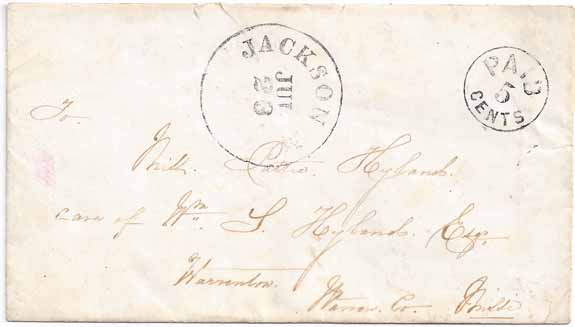 JACKSON
JUL
23
PAID
5
CENTS
To.
Hylands.
care of Wm S. Hylands. Esq.
Warrenton
Warren Co.